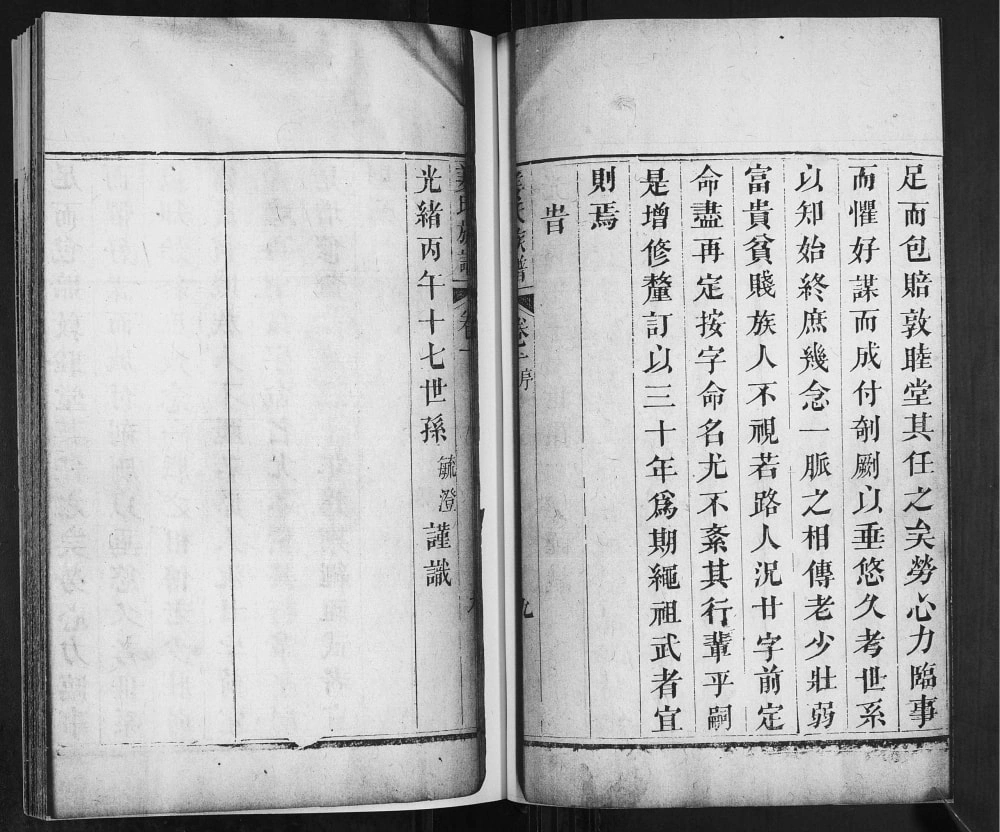 足而包賠敦睦堂其任之矣勞心力臨事
而懼好謀而成付剞劂以垂悠久考世系
以知始終庶幾念一脈之相傳老少壯弱
富貴貧賤族人不視若路人況廿字前定
命盡再定按字命名尤不紊其行輩乎嗣
是增修釐訂以三十年爲期繩祖武者宜
則焉
旹
氏族譜 卷一序 九
氏族譜 卷一
光緒丙午十七世孫毓澄謹識